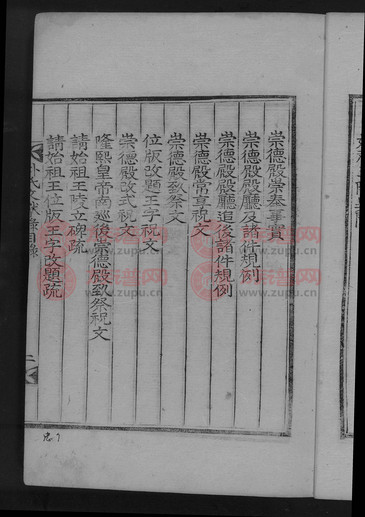 崇德殿崇奉事實
崇德殿殿廳及諸件規例
崇德殿殿廳追後諸件規例
崇德殿常享祝文
崇德殿致祭文
位版改題王字祝文
崇德殿改式祝文
隆熙皇帝南巡後崇德殿致祭祝文
請始祖王陵立碑疏
請始祖王位版王字改題疏
朴氏文獻錄目錄
二
www.zupu.cn